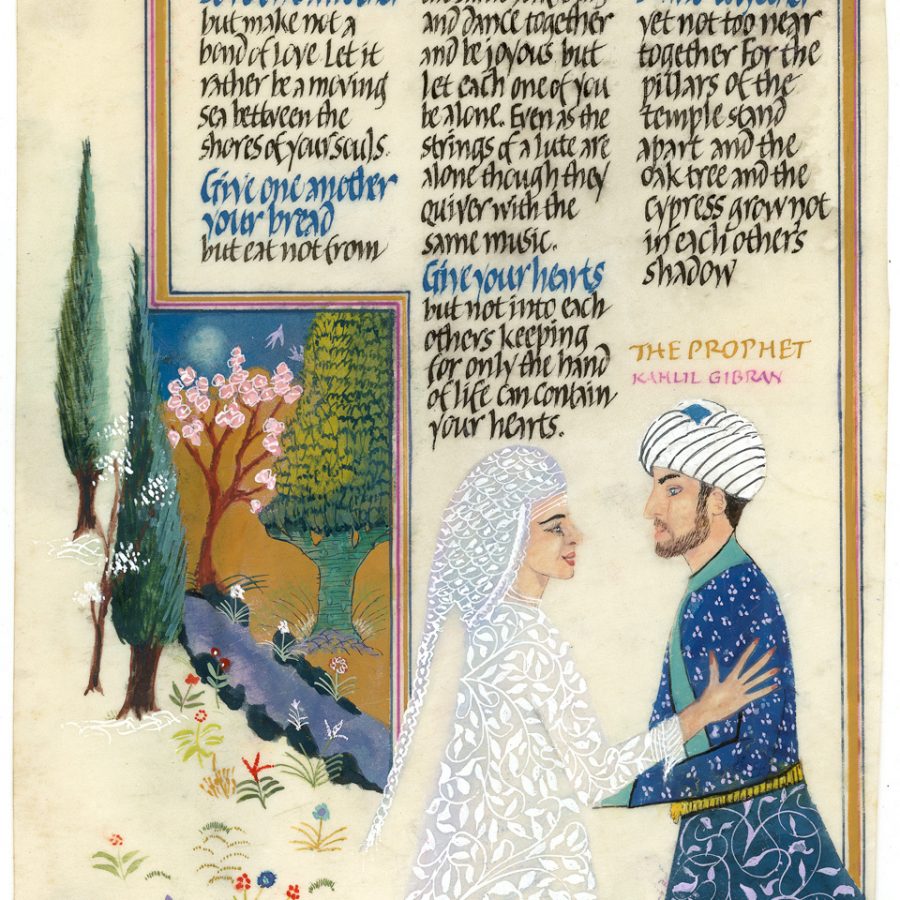 but make not a
bond of Love. Let it
rather be a moving
sea between the
shores of your souls.
Give one another
your bread
but eat not from
and dance together
and be joyous but
let each one of you
be alone. Even as the
strings of a lute are
alone though they
quiver with the
same music.
Give your hearts
but not into each
others keeping
for only the hand
of life can contain
your hearts.
together
yet not too near
together For the
pillars of the
temple stand
apart and the
oak tree and the
cypress grow not
in each others
shadow
THE PROPHET
KAHLIL GIBRAN